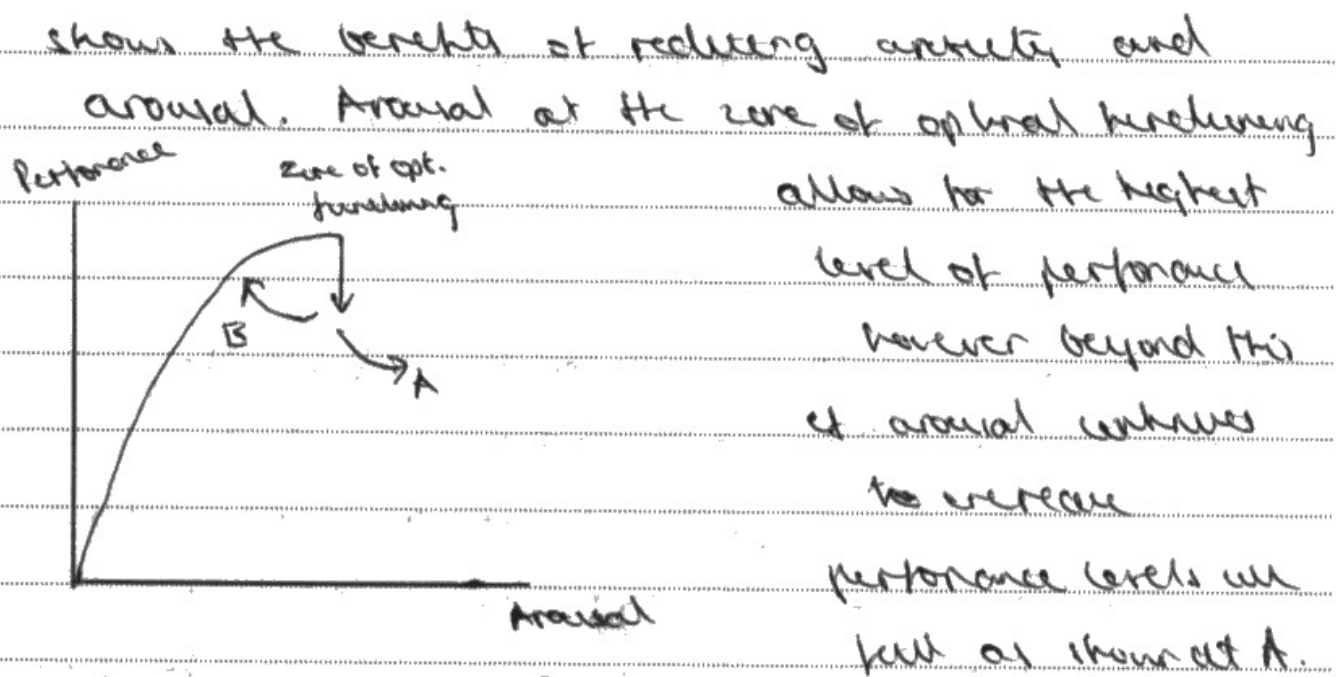 shows the benefits of reducing anxiety and
arousal. Arousal at the zone of optimal functioning
Performance
zone of opt.
functioning
allows for the highest
level of performance
however beyond this
if arousal continues
to increase
performance levels will
fall as shown at A.
B
A
Arousal